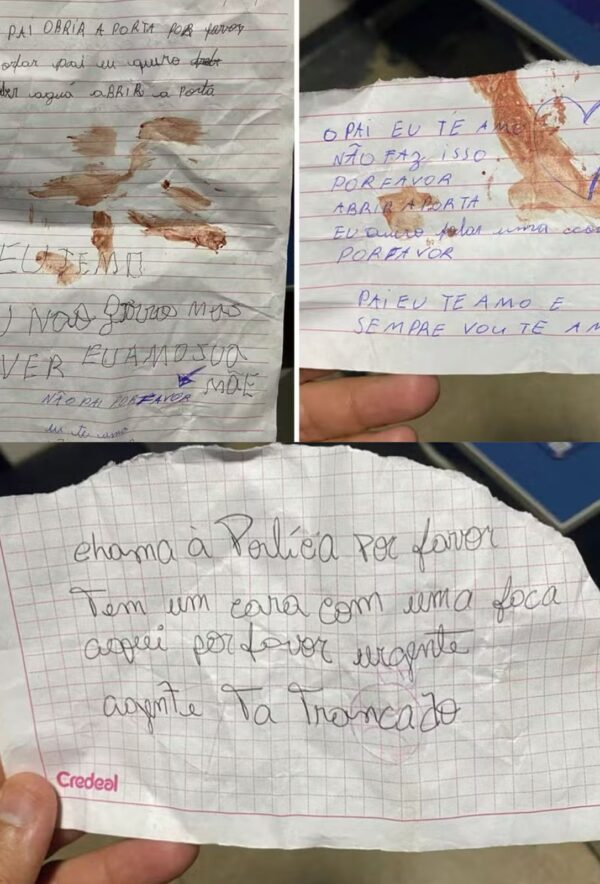 PAI OBRIR A PORTA POR favor
pai eu quero
aguá ABRIR a Porta
EU TEMO
NAO mas
VER EUAMOSUA
MÃE
NÃO PAI PORFAVOR
eu te amo
O PAI EU TE AMO
NÃO FAZ ISSO
PORFAVOR
ABRIR A PORTA
EU quero falar uma
PORFAVOR
PAI EU TE AMO E
SEMPRE VOU TE AM
chama à Policia Por favor
Tem um cara com uma foca
aqui por favor urgente
agente Ta Trancado
Credeal